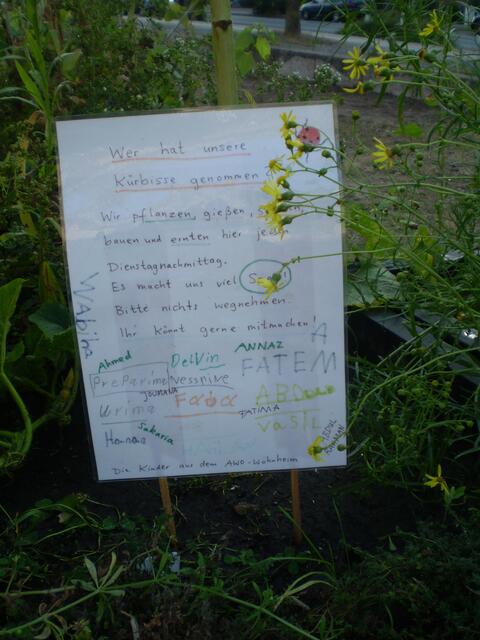 Wer hat unsere
Kürbisse genommen
Wir pflanzen, gießen,
bauen und ernten hier
Dienstagnachmittag.
Es macht uns viel
Bitte nichts wegnehmen.
Ihr könnt gerne mitmachen!
Wabiha
Ahmed
Delvin
ANNAZ
FATEMA
Preparime
Vessnive
Urima
Faba
FATIMA
Vasil
Sakaria
Die Kinder aus dem AWO-Wohnheim